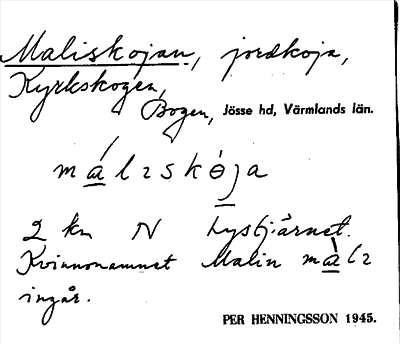 Maliskojan, jordkoja,
Kyrkskogen,
Bogen, Jösse hd, Värmlands län.
málıskója
2 km N Lystjärnet.
Kvinnonamnet Malin màlı
ingår.
PER HENNINGSSON 1945.